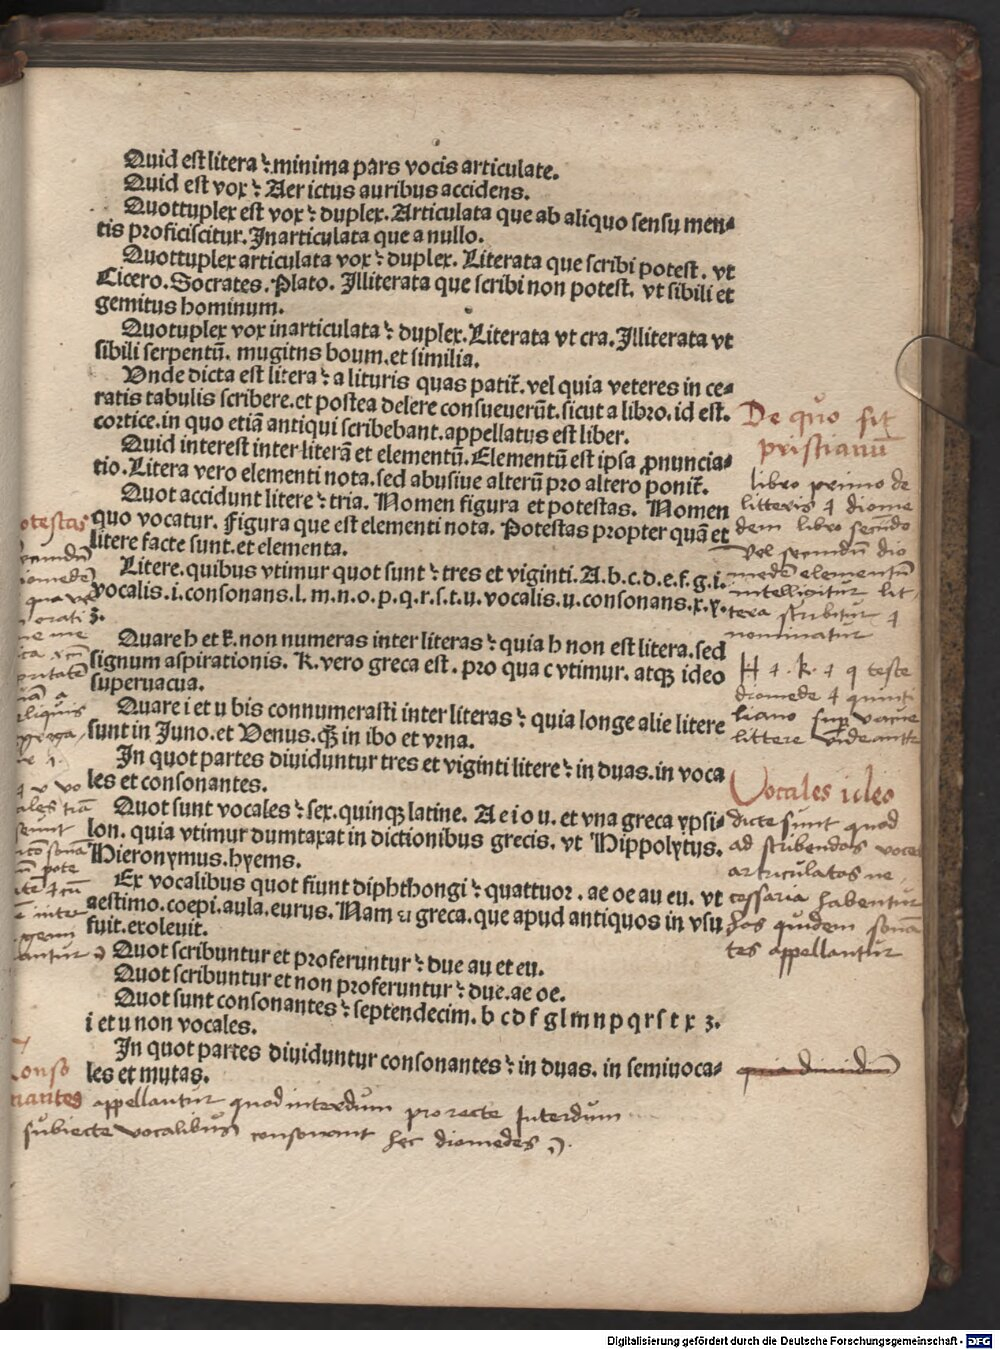 Quid est litera ? minima pars vocis articulate.
Quid est vox ? Aer ictus auribus accidens.
Quottuplex est vox ? duplex. Articulata que ab aliquo sensu men-
tis proficiscitur. Inarticulata que a nullo.
Quottuplex articulata vox ? duplex. Literata que scribi potest. vt
Cicero. Socrates. Plato. Illiterata que scribi non potest. vt sibili et
gemitus hominum.
Quotuplex vox inarticulata ? duplex. Literata vt cra. Illiterata vt
sibili serpentū. mugitus boum. et similia.
Vnde dicta est litera ? a lituris quas patit̄. vel quia veteres in ce-
ratis tabulis scribere. et postea delere consueuerūt. sicut a libro. id est.
cortice. in quo etiā antiqui scribebant. appellatus est liber.
Quid interest inter literā et elementū. Elementū est ipsa ꝓnuncia-
tio. Litera vero elementi nota. sed abusiue alterū pro altero ponit̄.
Quot accidunt litere ? tria. Nomen figura et potestas. Nomen
quo vocatur. Figura que est elementi nota. Potestas propter quā et
litere facte sunt. et elementa.
Litere. quibus vtimur quot sunt ? tres et viginti. A. b. c. d. e. f. g. i.
vocalis. i. consonans. l. m. n. o. p. q. r. s. t. u. vocalis. u. consonans. x. y.
z.
Quare h et k. non numeras inter literas ? quia h non est litera. sed
signum aspirationis. K. vero greca est. pro qua c vtimur. atqꝫ ideo
superuacua.
Quare i et u bis connumerasti inter literas ? quia longe alie litere
sunt in Juno. et Venus. qꝫ in ibo et vrna.
In quot partes diuiduntur tres et viginti litere ? in duas. in voca
les et consonantes.
Quot sunt vocales ? sex. quinqꝫ latine. A e i o u. et vna greca ypsi-
lon. quia vtimur dumtaxat in dictionibus grecis. vt Hippolytus.
Hieronymus. hyems.
Ex vocalibus quot fiunt diphthongi ? quattuor. ae oe au eu. vt
aestimo. coepi. aula. eurus. Nam greca. que apud antiquos in vsu
fuit. exoleuit.
Quot scribuntur et proferuntur ? due au et eu.
Quot scribuntur et non proferuntur ? due. ae oe.
Quot sunt consonantes ? septendecim. b c d f g l m n p q r s t x z.
i et u non vocales.
In quot partes diuiduntur consonantes ? in duas. in semiuoca-
les et mutas.
De quo fit
pristianū
libro primo de
litteris
libro secūdo
tera scribitur
nominatur
H k q teste
diomede quinti
liano
littere videantr
Vocales ideo
dicte sunt quod
ad scribendas voces
articulatas ne
cessaria habentur
has quidem sonā
tes appellantur
otestas
Conso
nantes appellantur quod interdum pro recte Interdum
subiecte vocalibus consonant hec diomedes
Digitalisierung gefördert durch die Deutsche Forschungsgemeinschaft - DFG